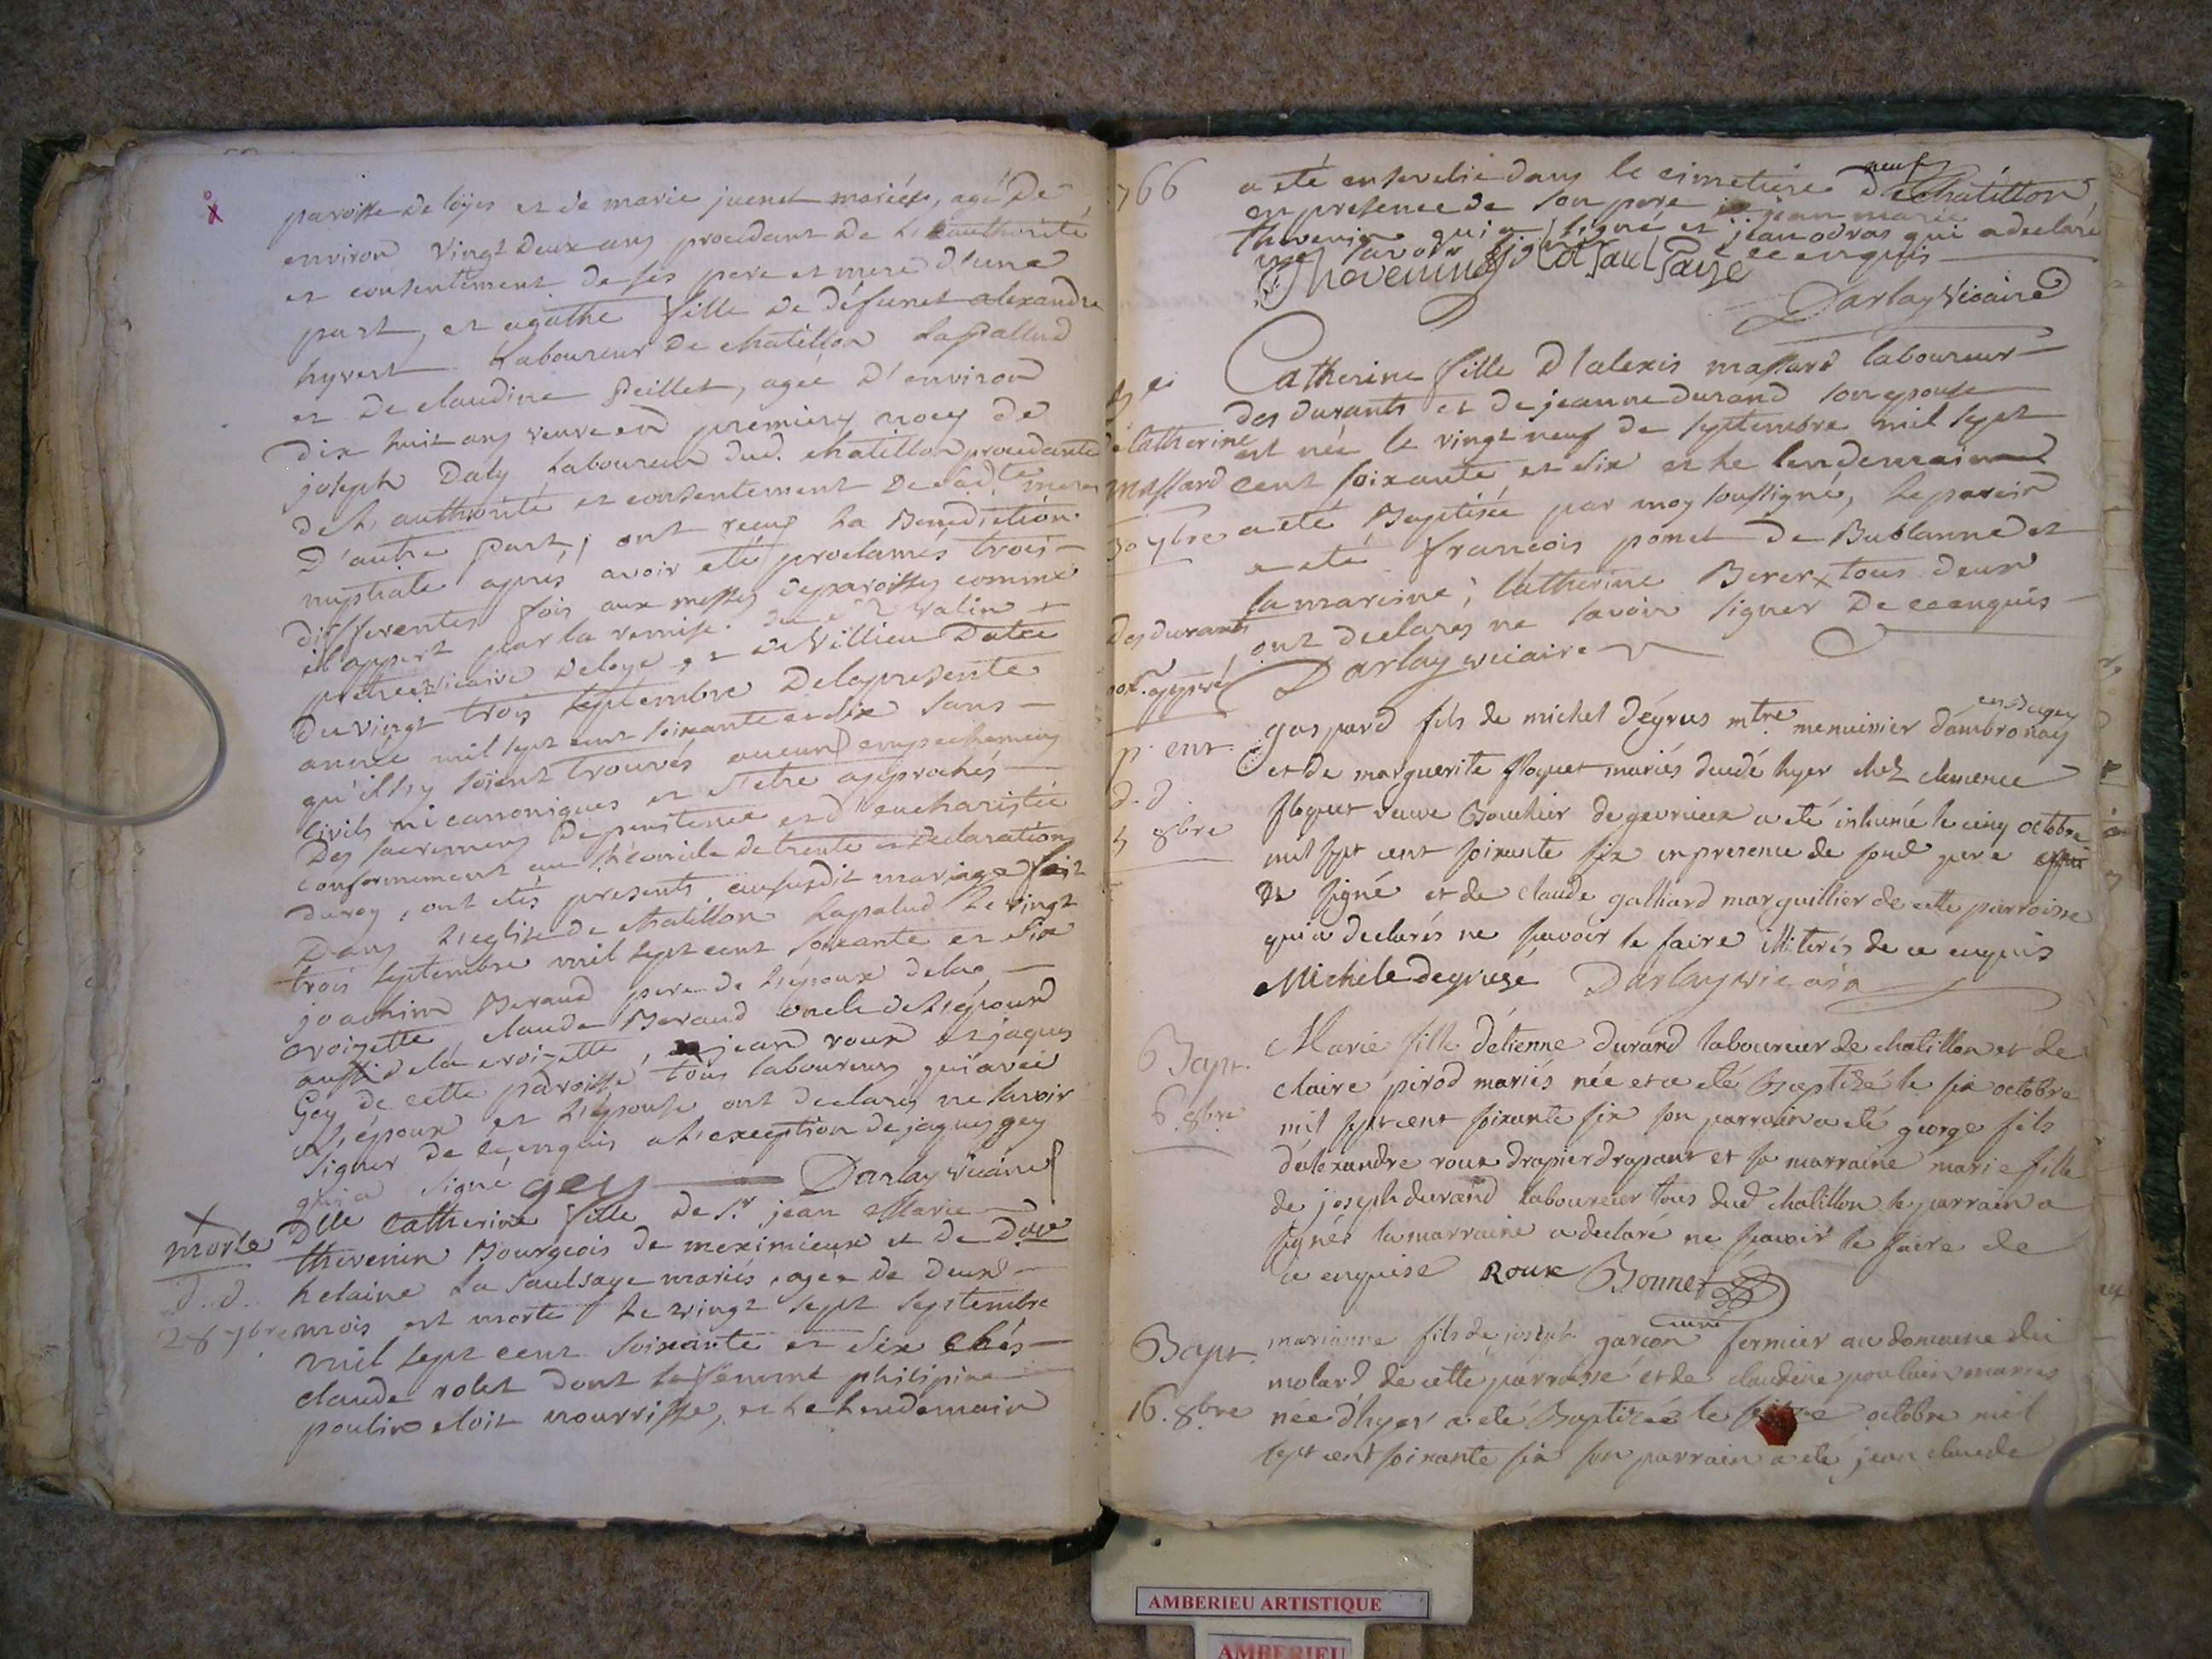 paroisse de loÿes et de marie juenet mariés, agé De
environ vingt deux ans procedant De L'authorité
et consentement de ses pere et mere d'une
part, et agathe fille De défunt alexandre
hyvert Laboureur De chatillon Lapallud
et De claudine Peillet, agée D'environ
dix huit ans veuve en premiers noces de
joseph Daly Laboureur dud. chatillon procedante
de L'authorité et consentement De sad.te mere
D'autre Part, ont reçus La Benediction
nuptiale aprés avoir eté proclamés trois
differentes fois aux messes de paroisses comme
il appert par la remise du s.r valin
prêtre vicaire De loye et de Villieu Datée
Du vingt trois septembre De la presente
année mil sept cent soixante et six sans
qu'il s'y soient trouvés aucuns empechemens
Civils ni canoniques et s'etre approchés
Des sacremens De penitence et d'eucharistie
conformement au concile de trente et Declaration
du roy, ont etés presents au susdit mariage fait
Dans L'eglise de chatillon Lapalud Le vingt
trois septembre mil sept cent soixante et six
joachim Beraud pere de L'époux de la
croizette, claude Beraud oncle de L'époux
aussi de la croizette, jean roux et jaques
Gey de cette paroisse tous laboureurs qui avec
L'époux et L'épouse ont declarés ne savoir
signer de ce enquis a L'exception de jaques gey
qui a signé gey Darlay vicaire
morte Dlle Catherine fille de S.r jean Marie
thevenin Bourgeois de meximieux et de D.lle
d..d. helaine La Saulsaye mariés, agée de deux
28 7bre mois est morte Le vingt sept septembre
mil sept cent soixante et six chés
claude rolet dont la femme philipine
poulin etoit nourrisse, et Le Lendemain
766 a eté ensevelie dans le cimetiere neuf de chatillon
en presence de son pere jean marie
thevenin qui a signé et jean odras qui a declaré
ne savoir signer de ce enquis
Thevenin
Darlay vicaire
Catherine fille d'alexis massard laboureur
des durants et de jeanne durand son epouse
Catherine est née le vingt neuf de septembre mil sept
massard cent soixante et six et le lendemain
30 7bre a eté Baptisée par moy soussigné, le parrin
a eté francois ponet de Bublanne et
la marine, Catherine Berer tous deux
des durants ont declarés ne savoir signer De ce enquis
Darlay vicaire
gaspard fils de michel dégrus mtre menuisier d'ambronay en Bugey
ent. et de marguerite floquet mariés decedé hyer chez clemence
d.d. floquet veuve Bouchier de gevrieux a eté inhumé le cinq octobre
5 8bre mil sept cent soixante six en presence de sond pere
signé et de claude galliard marguillier de cette parroisse
qui a declarés ne savoir le faire illiterés de ce enquis
Michele degruse Darlay vicaire
Bapt. Marie fille d'etienne durand laboureur de chatillon et de
claire pirod mariés née et a eté Baptizé le six octobre
6. 8bre mil sept cent soixante six son parrain a eté george fils
d'alexandre roux drapier drapant et sa marraine marie fille
de joseph durand laboureur tous dud chatillon, le parrain a
signé la marraine a declaré ne savoir le faire de
ce enquise Roux Bonnet curé
Bapt. marianne fils de joseph garçon fermier au domaine du
molard de cette parroisse et de claudine poulain mariés
16. 8bre née d'hyer a eté Baptizée le octobre mil
sept cent soixante six son parrain a eté jean claude
AMBERIEU ARTISTIQUE
AMBERIEU